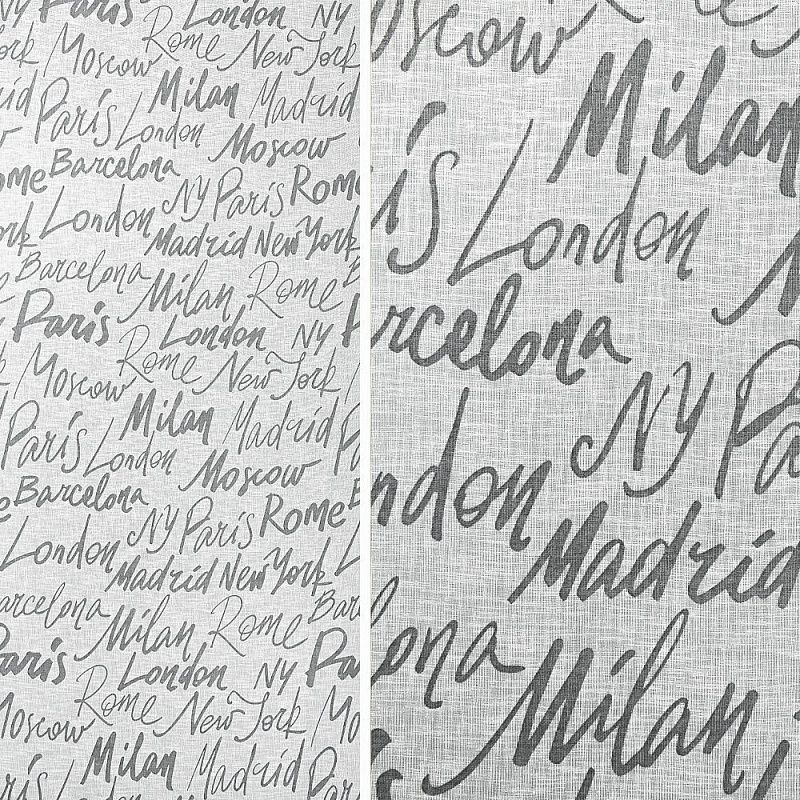 Paris London NY
Moscow Rome New York
Milan Madrid
Paris London Moscow
Rome Barcelona
NY Paris Rome
London
Madrid New York
Barcelona
Milan Rome
Paris London NY
Rome New York
Moscow
Milan Madrid
Paris London Moscow
Barcelona
NY Paris Rome
London
Madrid New York
Barcelona
Milan Rome
Paris London NY
Rome New York
Moscow
Milan Madrid
oscow
Milan
ís London
rcelona
NY Pa
ndon
Madrid
lona
Milan